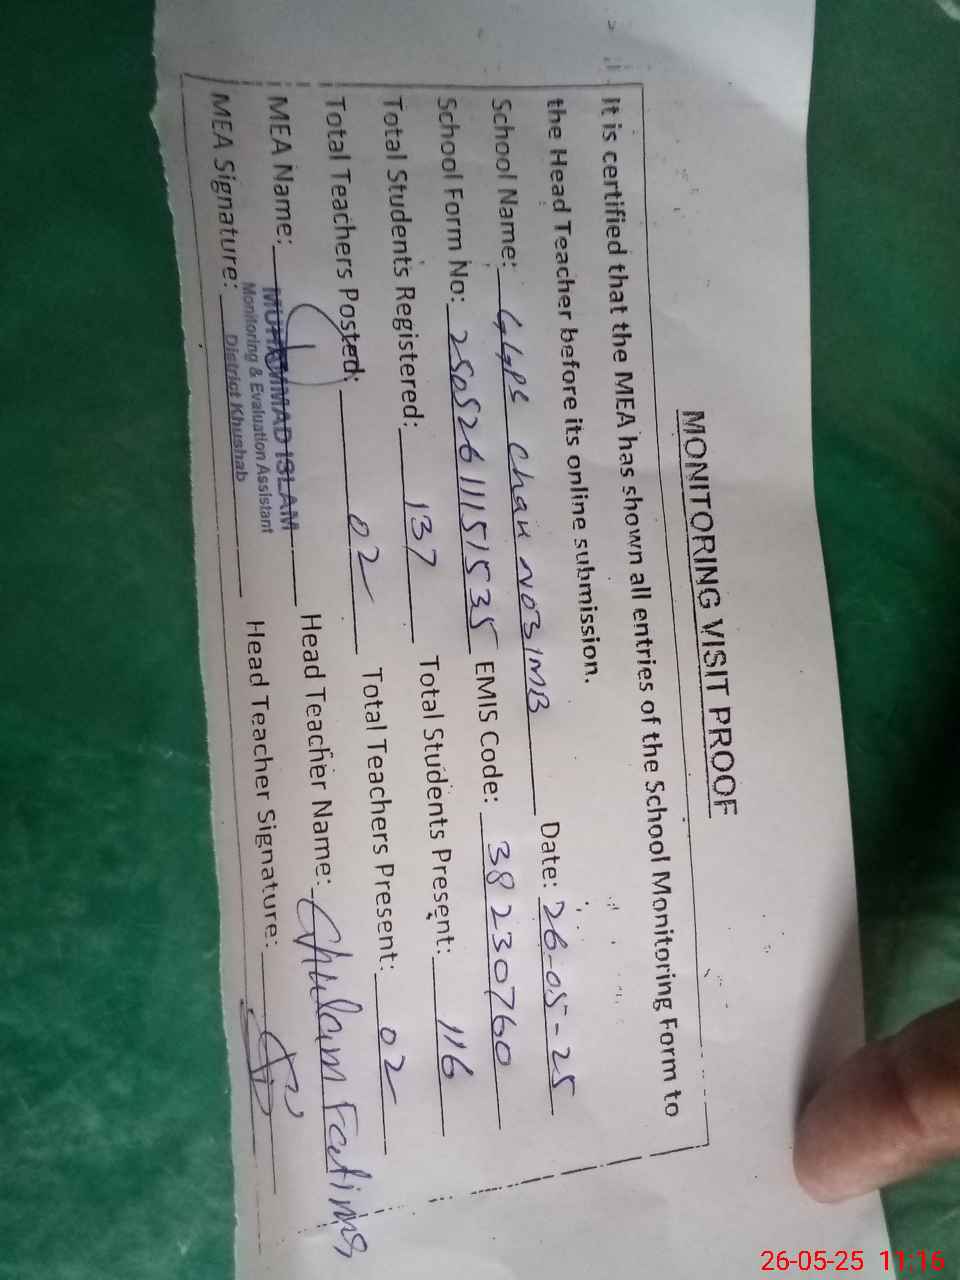 MONITORING VISIT PROOF
It is certified that the MEA has shown all entries of the School Monitoring Form to
the Head Teacher before its online submission.
School Name: GGPS Chak No 31MB Date: 26-05-25
School Form No: EMIS Code: 38230760
Total Students Registered: 137 Total Students Present: 116
Total Teachers Posted: 02 Total Teachers Present: 02
MEA Name: MUHAMMAD ISLAM Head Teacher Name: Ghulam Fatima
Monitoring & Evaluation Assistant
MEA Signature: District Khushab Head Teacher Signature:
26-05-25 11:16